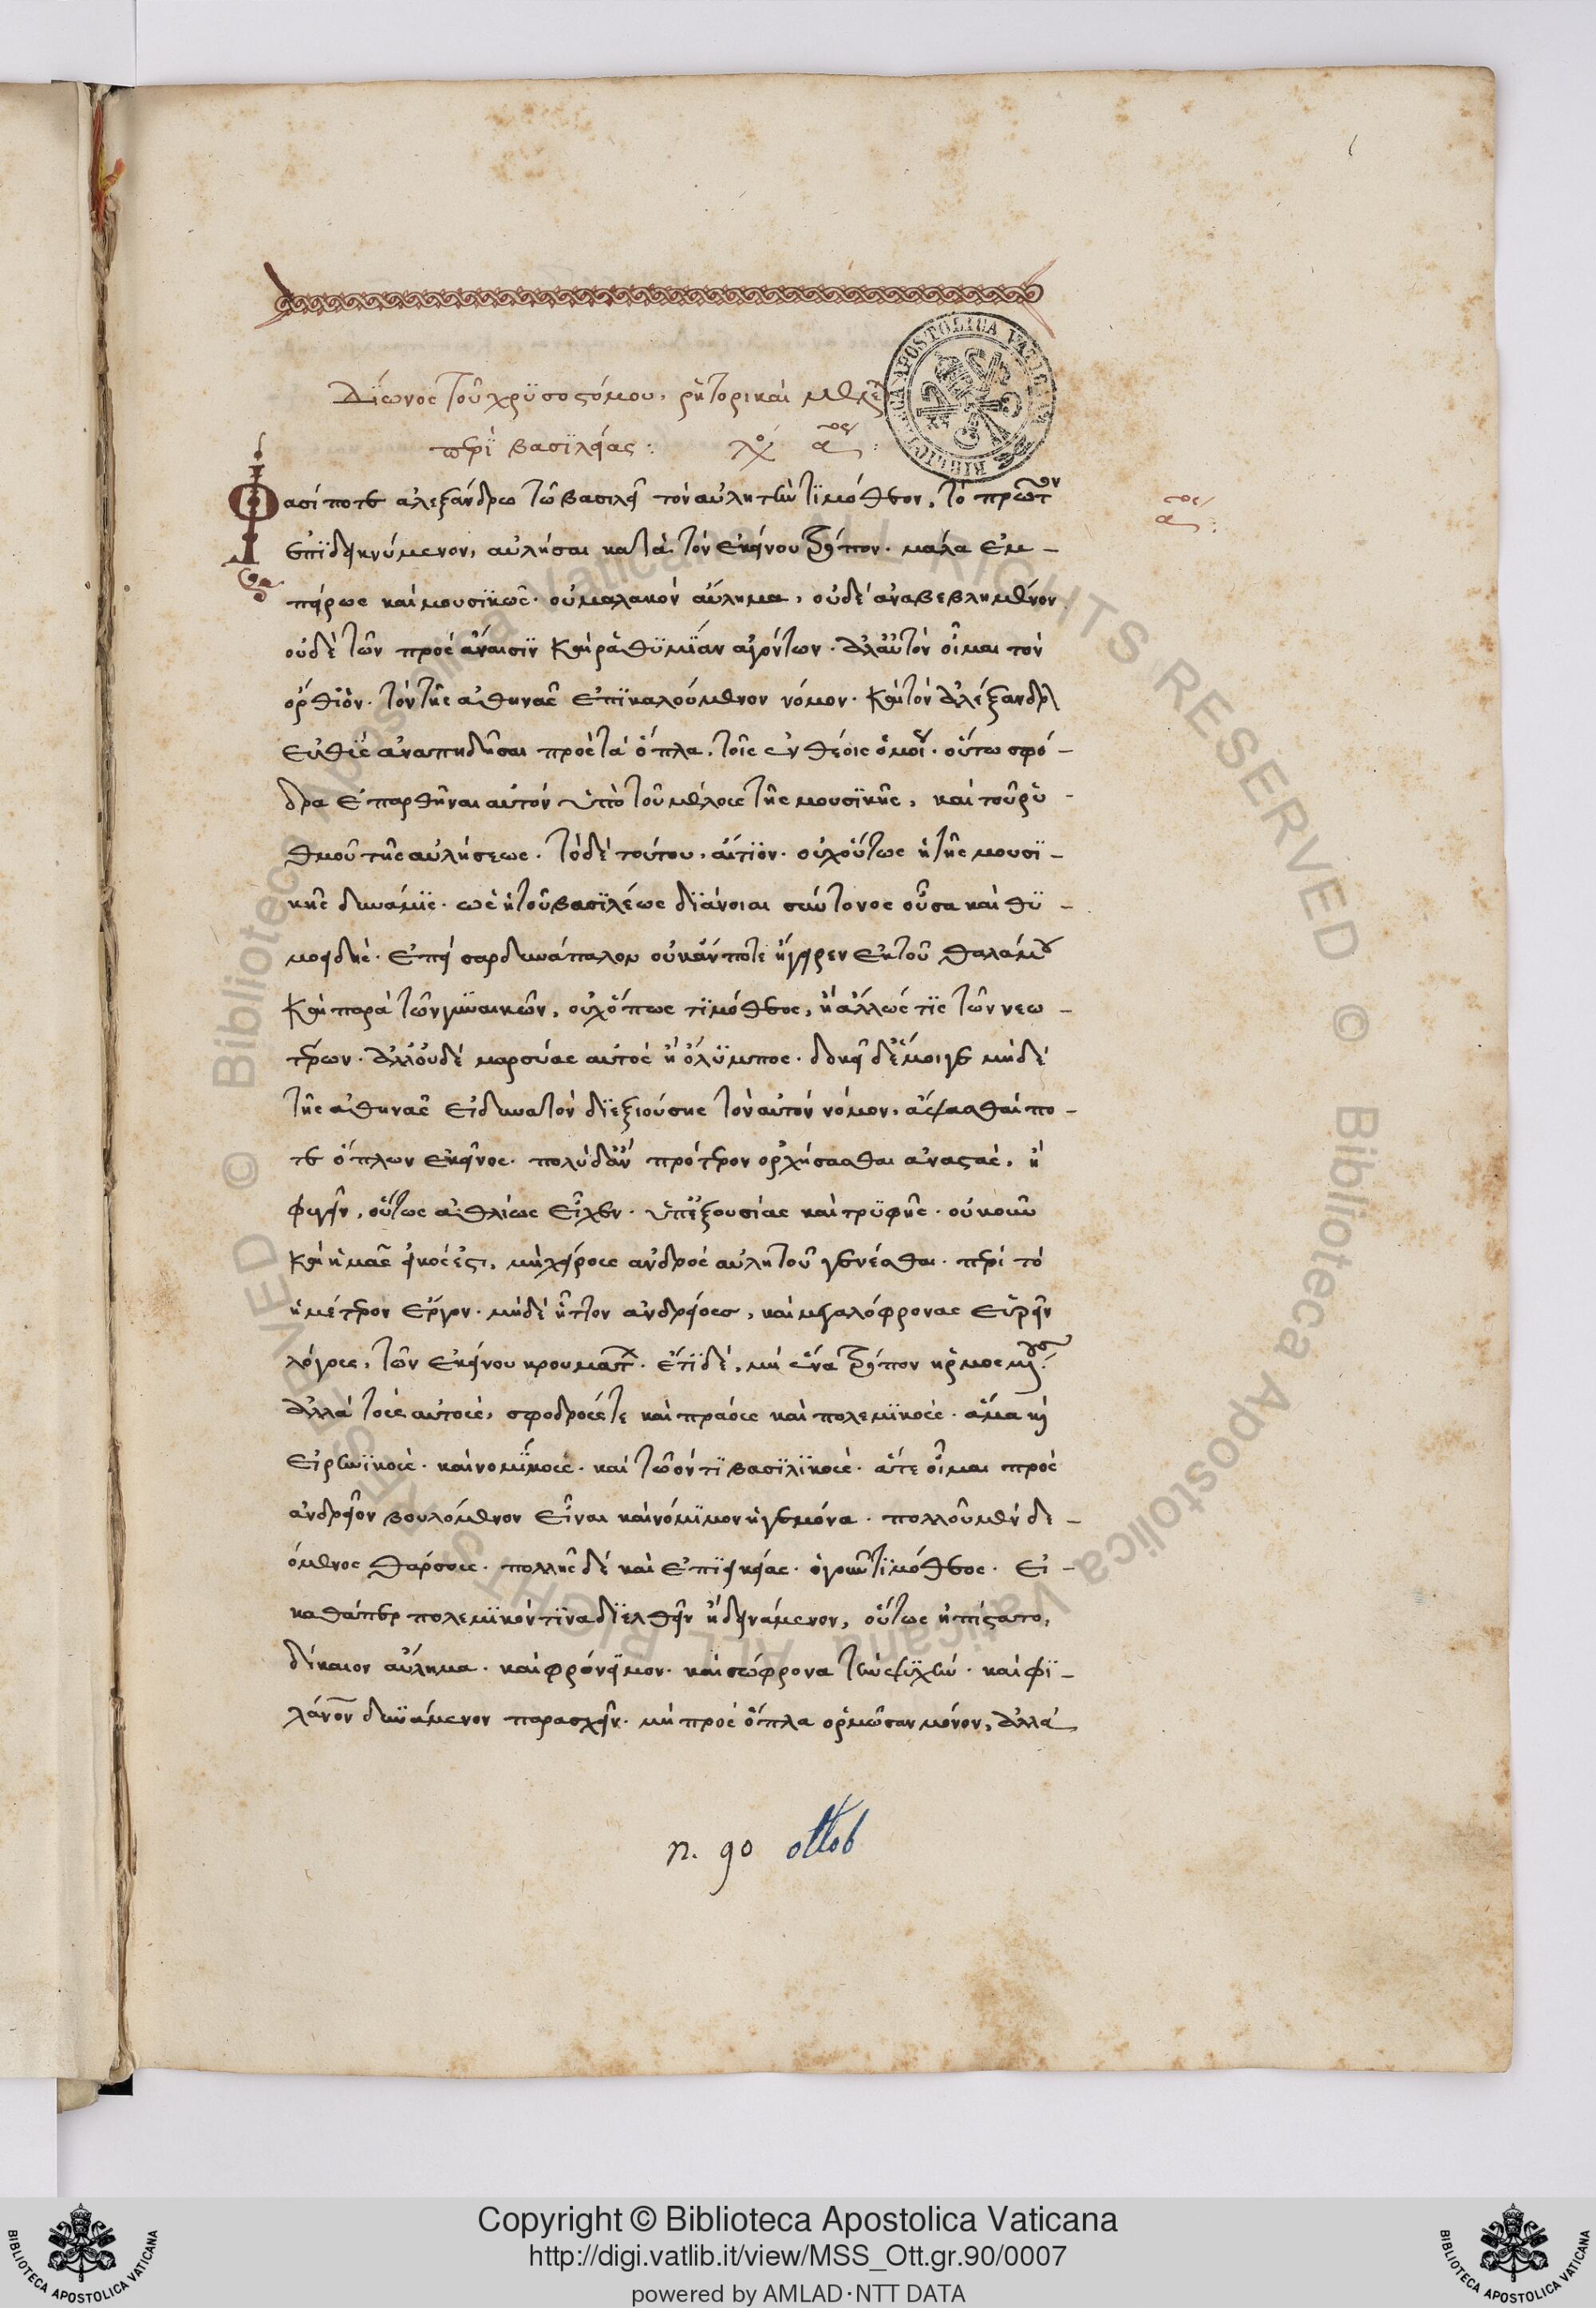 Δίωνος τοῦ χρϋσοστόμου, ρητορικαὶ μελέ
περὶ βασϊλείας : λό α ος :
Φασί ποτε ἀλεξάνδρω τῶ βασιλεῖ τὸν αὐλητὴν τϊμόθεον, τὸ πρῶτον
α ος :
ἐπϊδεικνύμενον, αὐλῆσαι κατὰ τὸν ἐκείνου τρόπον. μάλα ἐμ -
πείρως καὶ μουσϊκῶς. οὐ μαλακὸν αὔλημα, οὐδὲ ἀναβεβλημένον
οὐδὲ τῶν πρὸς ἄνεσϊν καὶ ραθϋμϊαν ἀγόντων. ἀλλ' αὐτὸν οἶμαι τὸν
ὄρθϊον. τὸν τῆς ἀθηνᾶς ἐπϊκαλούμενον νόμον. καὶ τὸν ἀλέξανδρον
εὐθϋς ἀναπηδῆσαι πρὸς τὰ ὅπλα, τοῖς ἐνθέοις ὁμοίως. οὕτω σφό -
δρα ἐπαρθῆναι αὐτὸν ὑπὸ τοῦ μέλους τῆς μουσϊκῆς, καὶ τοῦ ρυ -
θμοῦ τῆς αὐλήσεως. τὸ δὲ τούτου, αἴτϊον. οὐχ οὕτως ἡ τῆς μουσϊ -
κῆς δυνάμϊς. ὡς ἡ τοῦ βασϊλέως δϊάνοιαι σύντονος οὖσα καὶ θϋ -
μοειδής. ἐπεὶ σαρδανάπαλον οὐκ ἄν ποτε ἤγειρεν ἐκ τοῦ θαλάμου
καὶ παρὰ τῶν γυναικῶν, οὐχ ὅπως τϊμόθεος, ἢ ἄλλως τϊς τῶν νεω -
τέρων. ἀλλ' οὐδὲ μαρσύας αὐτὸς ἢ ὄλϋμπος. δοκεῖ δ' ἔμοιγε μηδὲ
τῆς ἀθηνᾶς εἰ δυνατὸν δϊεξιούσης τὸν αὐτὸν νόμον, ἅψασθαί πο -
τε ὅπλων ἐκεῖνος. πολὺ δ' ἂν πρότερον ὀρχήσασθαι ἀναστὰς, ἢ
φυγεῖν, οὕτως ἀθλίως εἶχεν. ὑπ' ἐξουσίας καὶ τρϋφῆς. οὐκοῦν
καὶ ἡμᾶς εἰκός ἐστι, μὴ χείρους ἀνδρὸς αὐλητοῦ γενέσθαι. περὶ τὸ
ἡμέτερον ἔργον. μηδὲ ἧττον ἀνδρείους, καὶ μεγαλόφρονας εὑρεῖν
λόγους, τῶν ἐκείνου κρουμάτων. ἔτϊ δὲ, μὴ ἕνα τρόπον ἡρμοσμένους
ἀλλὰ τοὺς αὐτοὺς, σφοδρούς τε καὶ πράους καὶ πολεμϊκούς. ἅμα καὶ
εἰρηνϊκούς. καὶ νομϊκούς. καὶ τῶ ὄντϊ βασϊλϊκούς. ἅτε οἶμαι πρὸς
ἀνδρεῖον βουλόμενον εἶναι καὶ νόμϊμον ἡγεμόνα. πολλοῦ μὲν δε -
όμενος θάρσους. πολλῆς δὲ καὶ ἐπϊεικείας. ὁ γοῦν τϊμόθεος. εἰ -
καθάπερ πολεμϊκόν τϊνα δϊελθεῖν ἠδυνάμενον, οὕτως ἠπίστατο,
δίκαιον αὔλημα. καὶ φρόνϊμον. καὶ σώφρονα τὴν ψϋχὴν. καὶ φϊ -
λάνον δυνάμενον παρασχεῖν. μὴ πρὸς ὅπλα ὁρμῶσαν μόνον, ἀλλὰ
n. 90 ottob
Copyright © Biblioteca Apostolica Vaticana
http://digi.vatlib.it/view/MSS_Ott.gr.90/0007
powered by AMLAD·NTT DATA